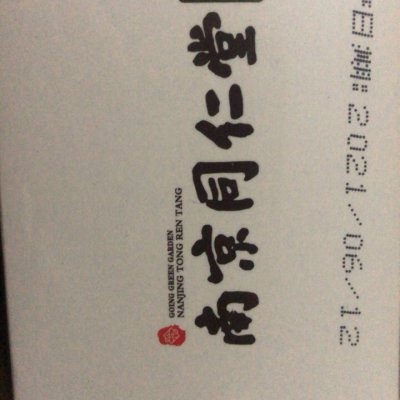 南京同仁堂
GOING GREEN GARDEN
NANJING TONG REN TANG
日期:2021/06/12